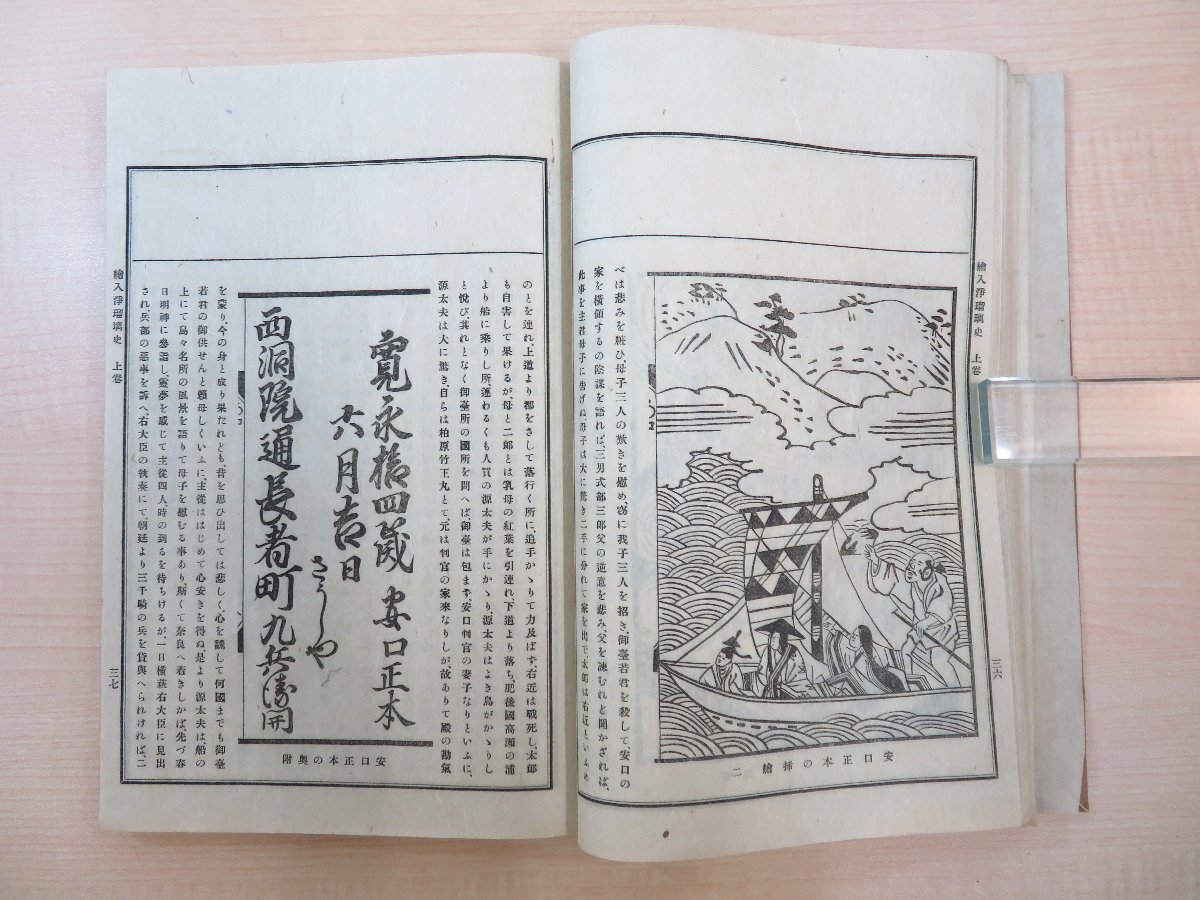 繪入淨瑠璃史　上卷
三六
安口正本の挿繪　二
べは悲みを粧ひ、母子三人の歎きを慰め、窃に我子三人を招き、御臺若君を殺して、安口の
家を横領するの陰謀を語れば、三男式部三郎父の逆意を悲み、父を諫むれど聞かざれば、
此事を主君母子に告げぬ、母子は大に驚き二手に分れて家を出で、太郎は右近といふめ
のとを連れ、上道より都をさして落行く所に、追手かゝりて力及ばず、右近は戰死し、太郎
も自害して果けるが、母と二郎とは乳母の紅葉を引連れ、下道より落ち、肥後國高瀬の浦
より船に乘りし所、運わるくも人買の源太夫が手にかゝり、源太夫はよき鳥がかゝりし
と悦び、其れとなく御臺所の國所を問へば、御臺は包まず、安口判官の妻子なりといふに、
源太夫は大に驚き、自らは柏原竹王丸とて、元は判官の家來なりしが、故ありて殿の勘氣
寛永拾四歳　安口正本
六月吉日
さうしや
西洞院通長者町九兵衛開
安口正本の奥附
を蒙り、今の身と成り果たれども、昔を思ひ出しては悲しく、心を飜して何國までも御臺
若君の御供せんと頼母しくいふに、主從ははじめて心安きを得ぬ、是より源太夫は、船の
上にて島々名所の風景を語りて母子を慰むる事あり、斯くて奈良へ着きしかば、先づ春
日明神に參詣し、靈夢を感じて主從四人時の到るを待ちけるが、一日横萩右大臣に見出
され、兵部の惡事を訴へ、右大臣の執奏にて、朝廷より三千騎の兵を貸與へられければ、二
繪入淨瑠璃史　上卷
三七